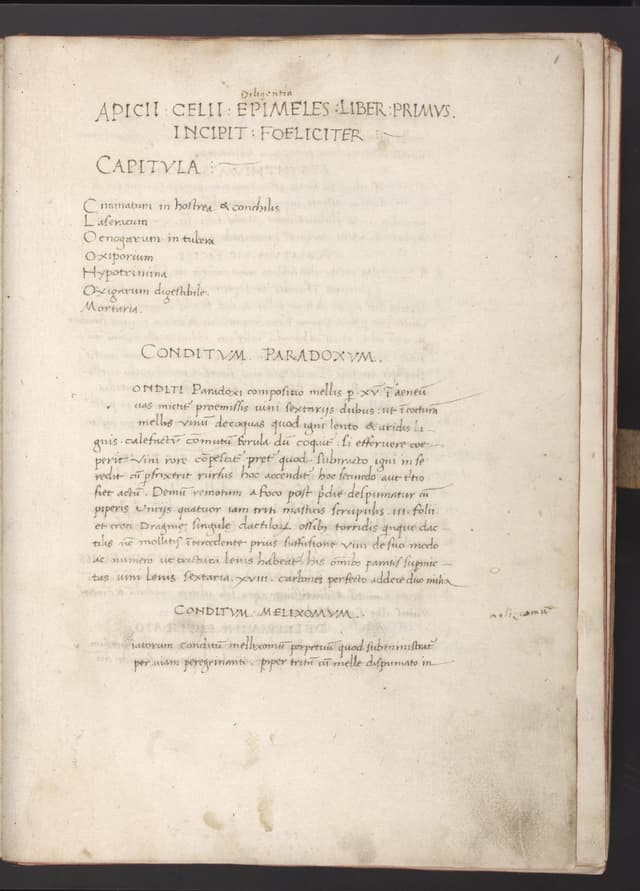 1
Diligentia
APICII · CELII : EPIMELES : LIBER : PRIMVS.
INCIPIT : FOELICITER :
CAPITVLA :
Cumatum in hostrea & conchilis
Laseratum
Oenogarum in tubera
Oxiporium
Hypotrimma
Oxigarum digestibile.
Mortaria.
CONDITVM PARADOXVM.
ONDITI Paradoxi compositio mellis p̄ · XV · ī aeneū
uas mictit̄ praemissis uini sextarijs duobus · ut ī coctura
mellis vinū decoquas quod igni lento & aridis li
gnis · calefactū comutū ferula dū coquit̄ · si efferuere coe
perit vini rore cōpescit̄ pret̄ quod · subtracto igni in se
redit cū pfrixerit rursus hoc accendit̄ hoc secūdo aut t̄tio
fiet actū · Demū remotum a foco post p̄die despumatur cū
piperis Vncijs quatuor iam triti masticis scrupulis · III · folii
et croci Dragme singule dactiloꝝ ossibꝰ torridis qnque dac
tilis nē mollitis ītercedente prius suffusione vini de suo modo
ac numero ut tritura lenis habeat̄ his om̄ibꝰ paratis supmic
tas uini lenis sextaria · XVIII · carbones perfecto addere duo milia
CONDITVM · MELIXOMVM ·
iatorum conditū mellixomū perpetuū quod subministrat̄
per uiam peregrinanti · piper tritū cū melle dispumato in